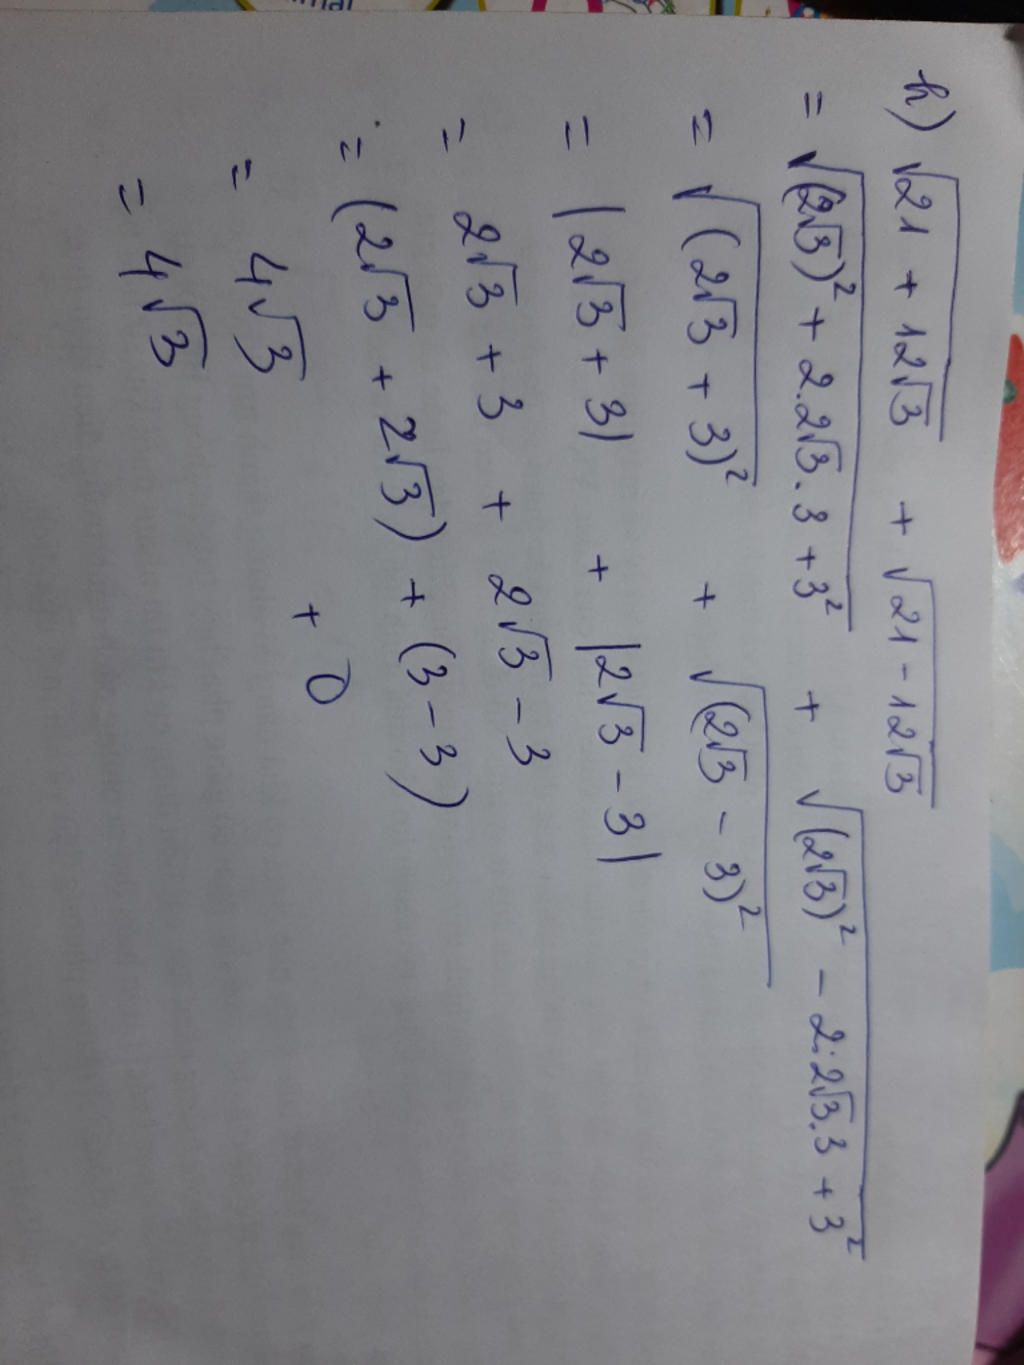 h) √(21 + 12√3) + √(21 - 12√3)
= √((2√3)² + 2.2√3.3 + 3²) + √((2√3)² - 2.2√3.3 + 3²)
= √((2√3 + 3)²) + √((2√3 - 3)²)
= |2√3 + 3| + |2√3 - 3|
= 2√3 + 3 + 2√3 - 3
= (2√3 + 2√3) + (3 - 3)
= 4√3 + 0
= 4√3